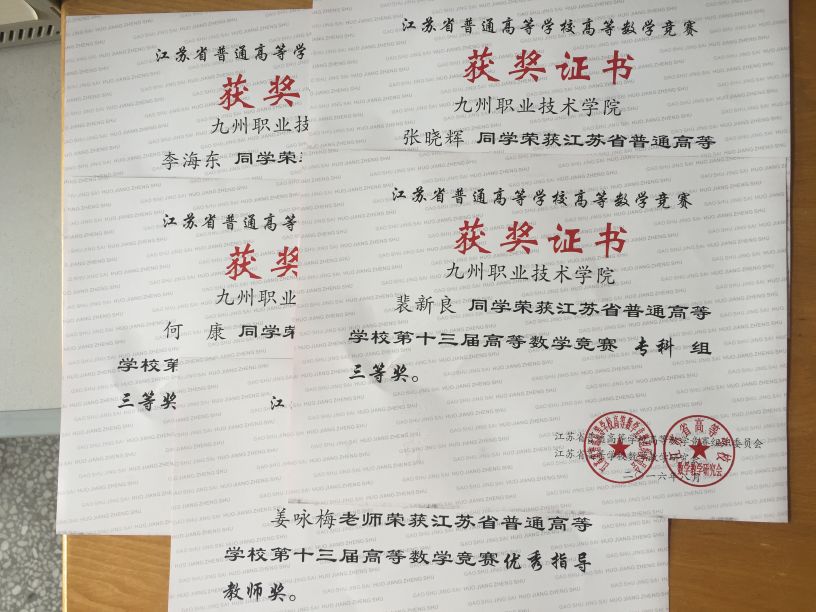 江苏省普通高等学
获奖
九州职业技
李海东 同学荣
江苏省普通高等学校高等数学竞赛
获奖证书
九州职业技术学院
张晓辉 同学荣获江苏省普通高等
江苏省普通高等
获奖
九州职业
何 康 同学荣
学校第
三等奖
江苏省普通高等学校高等数学竞赛
获奖证书
九州职业技术学院
裴新良 同学荣获江苏省普通高等
学校第十三届高等数学竞赛 专科 组
三等奖。
江苏省普通高等学校高等数学竞赛组织委员会
二〇一六年八月
数学教学研究会
江
姜咏梅老师荣获江苏省普通高等
学校第十三届高等数学竞赛优秀指导
教师奖。
GAO SHU JING SAI HUO JIANG ZHENG SHU